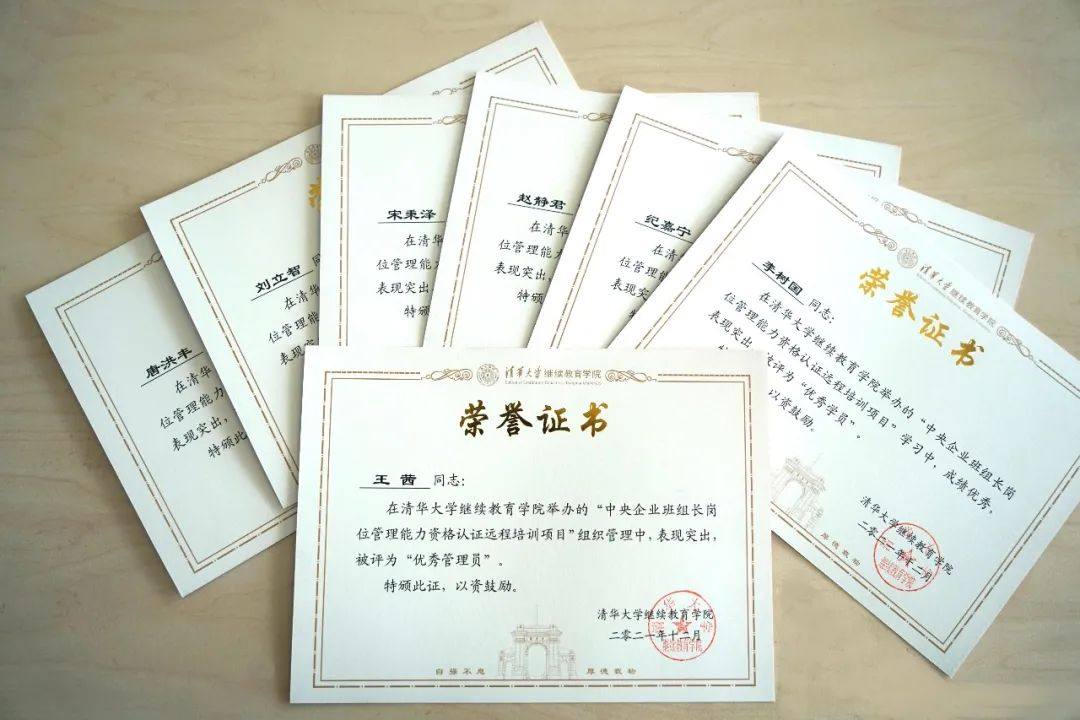 唐洪丰
在清华
位管理能力
表现突出,
特颁此
刘立智 同
在清
位管理
表现
宋秉泽
在清华
位管理能力
表现突出,
特颁
赵静君
在清华
位管理能
表现突出
特颁
纪嘉宁
在清
位管理
表现
清华大学继续教育学院
荣誉证书
李树国 同志:
在清华大学继续教育学院举办的“中央企业班组长岗
位管理能力资格认证远程培训项目”学习中,成绩优秀,
表现突出,被评为“优秀学员”。
以资鼓励。
清华大学继续教育学院
二零二一年十二月
厚德载物
清华大学继续教育学院
荣誉证书
王茜 同志:
在清华大学继续教育学院举办的“中央企业班组长岗
位管理能力资格认证远程培训项目”组织管理中,表现突出,
被评为“优秀管理员”。
特颁此证,以资鼓励。
清华大学继续教育学院
二零二一年十二月
自强不息 厚德载物